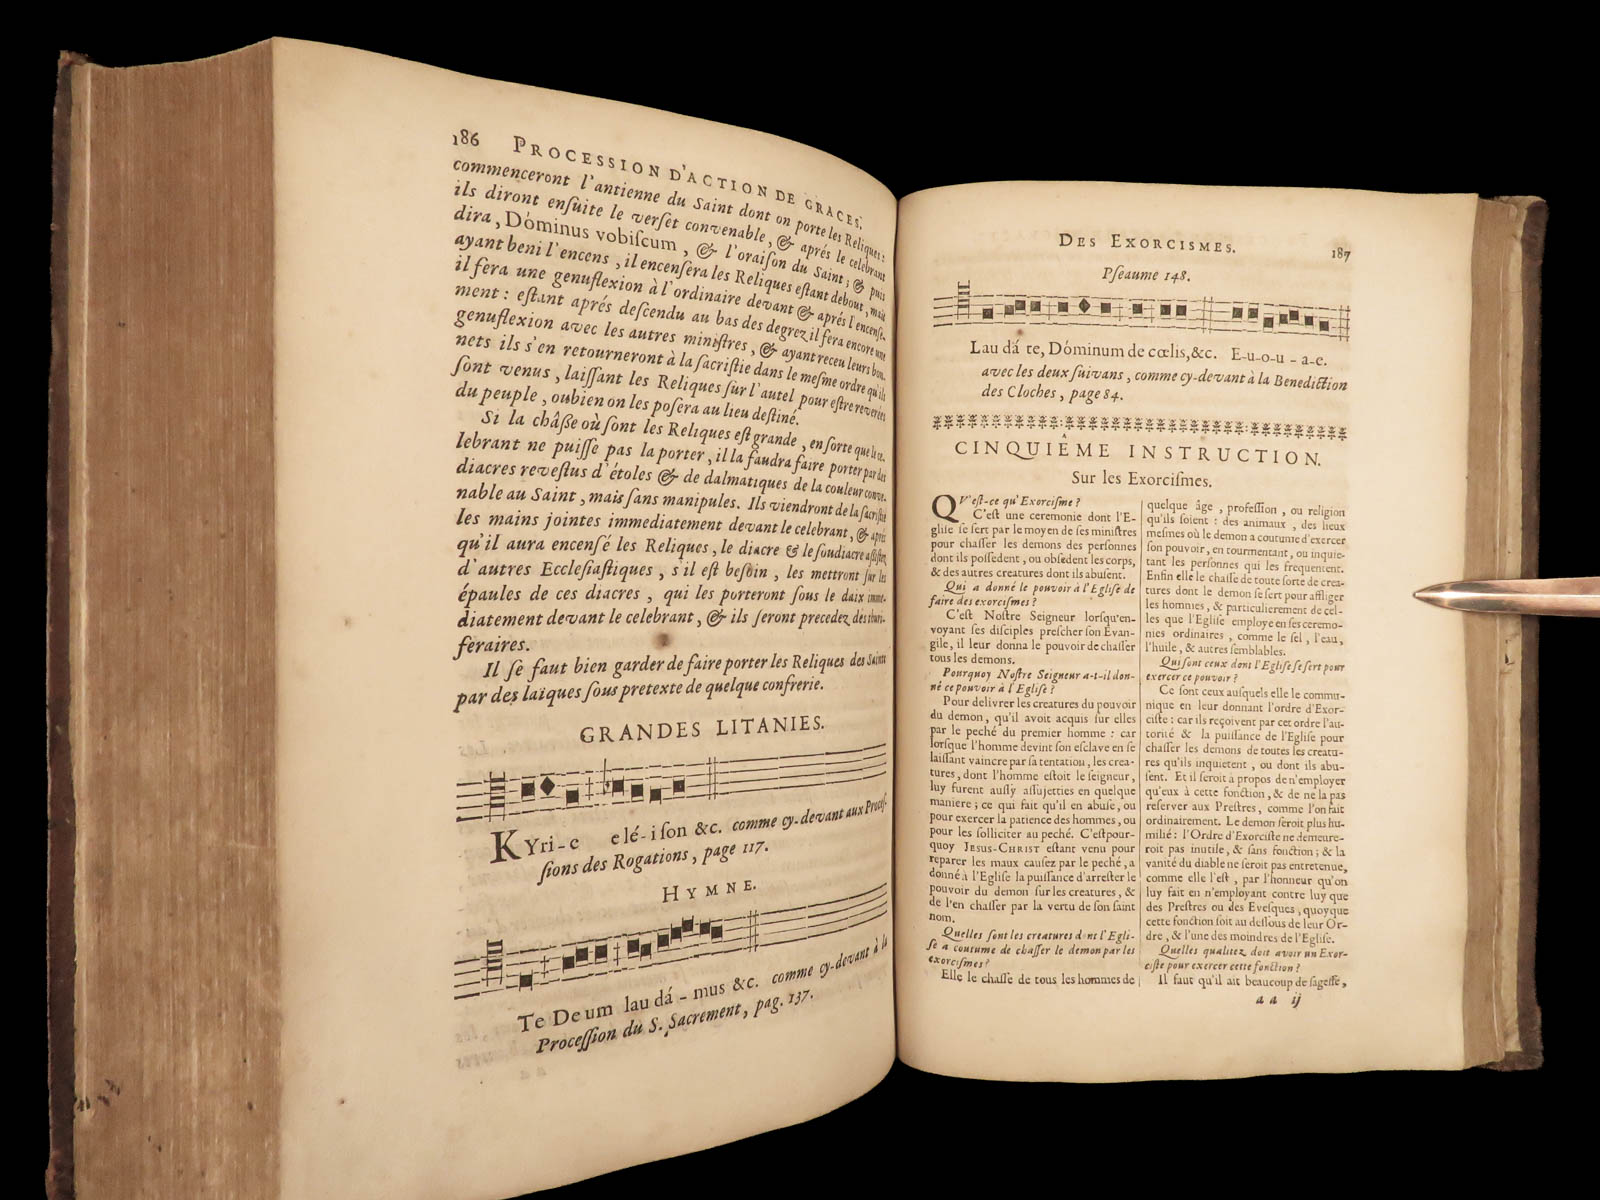 186 PROCESSION D'ACTION DE GRACES.
commenceront l'antienne du Saint dont on porte les Reliques:
ils diront enſuite le verſet convenable, & aprés le celebrant
dira, Dóminus vobiſcum, & l'oraiſon du Saint; & puis
ayant beni l'encens, il encenſera les Reliques eſtant debout, mais
il fera une genuflexion à l'ordinaire devant & aprés l'encenſe-
ment: eſtant aprés deſcendu au bas des degrez il fera encore une
genuflexion avec les autres miniſtres, & ayant receu leurs bon-
nets ils s'en retourneront à la ſacriſtie dans le meſme ordre qu'ils
ſont venus, laiſſant les Reliques ſur l'autel pour eſtre reverées
du peuple, oubien on les poſera au lieu deſtiné.
Si la châſſe où ſont les Reliques eſt grande, en ſorte que le ce-
lebrant ne puiſſe pas la porter, il la faudra faire porter par des
diacres reveſtus d'étoles & de dalmatiques de la couleur conve-
nable au Saint, mais ſans manipules. Ils viendront de la ſacriſtie
les mains jointes immediatement devant le celebrant, & aprés
qu'il aura encenſé les Reliques, le diacre & le ſoudiacre aſſiſtez
d'autres Eccleſiaſtiques, s'il eſt beſoin, les mettront ſur les
épaules de ces diacres, qui les porteront ſous le daix imme-
diatement devant le celebrant, & ils ſeront precedez des thuri-
féraires.
Il ſe faut bien garder de faire porter les Reliques des Saints
par des laïques ſous pretexte de quelque confrerie.
GRANDES LITANIES.
KYri-e elé-iſon &c. comme cy-devant aux Proceſ-
ſions des Rogations, page 117.
HYMNE.
Te Deum laudá-mus &c. comme cy-devant à la
Proceſſion du S. Sacrement, pag. 137.
DES EXORCISMES. 187
Pſeaume 148.
Laudá te, Dóminum de cœlis, &c. E-u-o-u-a-e.
avec les deux ſuivans, comme cy-devant à la Benediction
des Cloches, page 84.
CINQUIÊME INSTRUCTION.
Sur les Exorciſmes.
QV'eſt-ce qu'Exorciſme?
C'eſt une ceremonie dont l'E-
gliſe ſe ſert par le moyen de ſes miniſtres
pour chaſſer les demons des perſonnes
dont ils poſſedent, ou obſedent les corps,
& des autres creatures dont ils abuſent.
Qui a donné le pouvoir à l'Egliſe de
faire des exorciſmes?
C'eſt Noſtre Seigneur lorſqu'en-
voyant ſes diſciples preſcher ſon Evan-
gile, il leur donna le pouvoir de chaſſer
tous les demons.
Pourquoy Noſtre Seigneur a-t-il don-
né ce pouvoir à l'Egliſe?
Pour delivrer les creatures du pouvoir
du demon, qu'il avoit acquis ſur elles
par le peché du premier homme: car
lorſque l'homme devint ſon eſclave en ſe
laiſſant vaincre par ſa tentation, les crea-
tures, dont l'homme eſtoit le ſeigneur,
luy furent auſſy aſſujetties en quelque
maniere; ce qui fait qu'il en abuſe, ou
pour exercer la patience des hommes, ou
pour les ſolliciter au peché. C'eſt pour-
quoy JESUS-CHRIST eſtant venu pour
reparer les maux cauſez par le peché, a
donné à l'Egliſe la puiſſance d'arreſter le
pouvoir du demon ſur les creatures, &
de l'en chaſſer par la vertu de ſon ſaint
nom.
Quelles ſont les creatures dont l'Egli-
ſe a coutume de chaſſer le demon par les
exorciſmes?
Elle le chaſſe de tous les hommes de
quelque âge, profeſſion, ou religion
qu'ils ſoient: des animaux, des lieux
meſmes où le demon a coutume d'exercer
ſon pouvoir, en tourmentant, ou inquie-
tant les perſonnes qui les frequentent.
Enfin elle le chaſſe de toute ſorte de crea-
tures dont le demon ſe ſert pour affliger
les hommes, & particulierement de cel-
les que l'Egliſe employe en ſes ceremo-
nies ordinaires, comme le ſel, l'eau,
l'huile, & autres ſemblables.
Qui ſont ceux dont l'Egliſe ſe ſert pour
exercer ce pouvoir?
Ce ſont ceux auſquels elle le commu-
nique en leur donnant l'ordre d'Exor-
ciſte: car ils reçoivent par cet ordre l'au-
torité & la puiſſance de l'Egliſe pour
chaſſer les demons de toutes les creatu-
res qu'ils inquietent, ou dont ils abu-
ſent. Et il ſeroit à propos de n'employer
qu'eux à cette fonction, & de ne la pas
reſerver aux Preſtres, comme l'on fait
ordinairement. Le demon ſeroit plus hu-
milié: l'Ordre d'Exorciſte ne demeure-
roit pas inutile, & ſans fonction; & la
vanité du diable ne ſeroit pas entretenue,
comme elle l'eſt, par l'honneur qu'on
luy fait en n'employant contre luy que
des Preſtres ou des Eveſques, quoyque
cette fonction ſoit au deſſous de leur Or-
dre, & l'une des moindres de l'Egliſe.
Quelles qualitez doit avoir un Exor-
ciſte pour exercer cette fonction?
Il faut qu'il ait beaucoup de ſageſſe,
a a ij